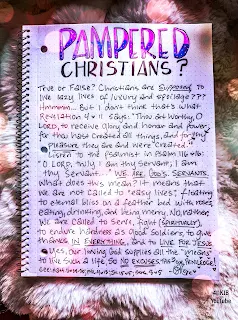 PAMPERED
CHRISTIANS?
True or False? Christians are supposed to
live lazy lives of luxury and
Hmmmm... But I don't think that's what
Revelation 4 v 11 says: "Thou art worthy, O
LORD, to receive glory and honour and power;
for thou hast created all things, and for thy
Pleasure they are and were Created."
Listen to the psalmist in Psalm 116 v 16:
O LORD, truly I am thy Servant; I am
thy Servant. WE ARE GOD'S SERVANTS.
What does this mean? It means that
we are not Called to "easy lives", floating
to eternal bliss on a feather bed with roses,
eating, drinking, and being merry. No, rather,
We are Called to Serve, fight (SPIRITUALLY),
to endure hardness as Good Soldiers, to give
thanks IN EVERYTHING, and to LIVE FOR JESUS.
Yes, our loving God supplies all the "means"
to live Such a life, So NO EXCUSES
4UKIB
YouTube